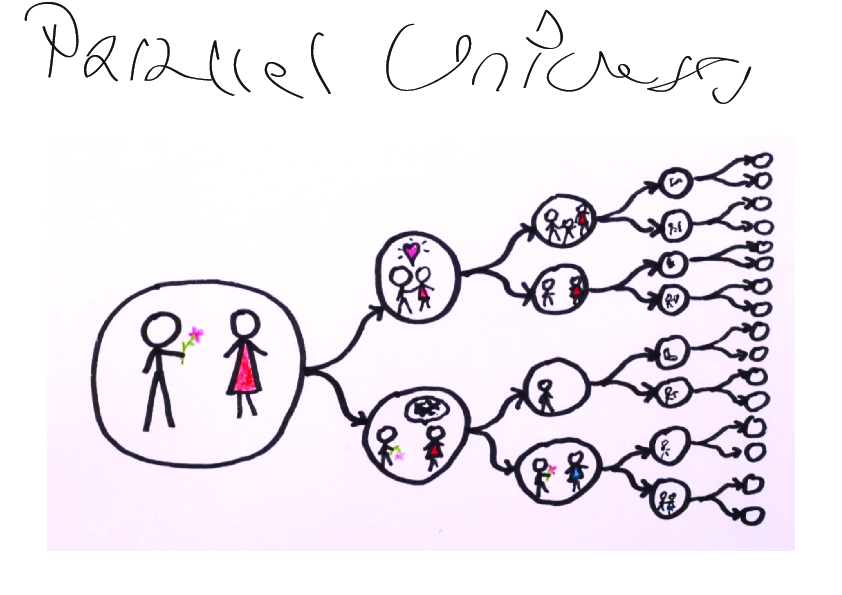 Parallel Universes